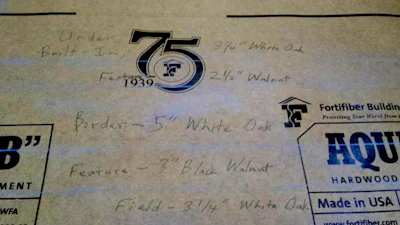 Under
Built-In
75
3 1/4" White Oak
2 1/4" Walnut
1939
F
Border - 5" White Oak
F
Fortifiber Building
Protecting Your World from
Feature - 3" Black Walnut
Field - 3 1/4" White Oak
B"
MENT
WFA
AQU
HARDWOOD
Made in USA
www.fortifiber.com